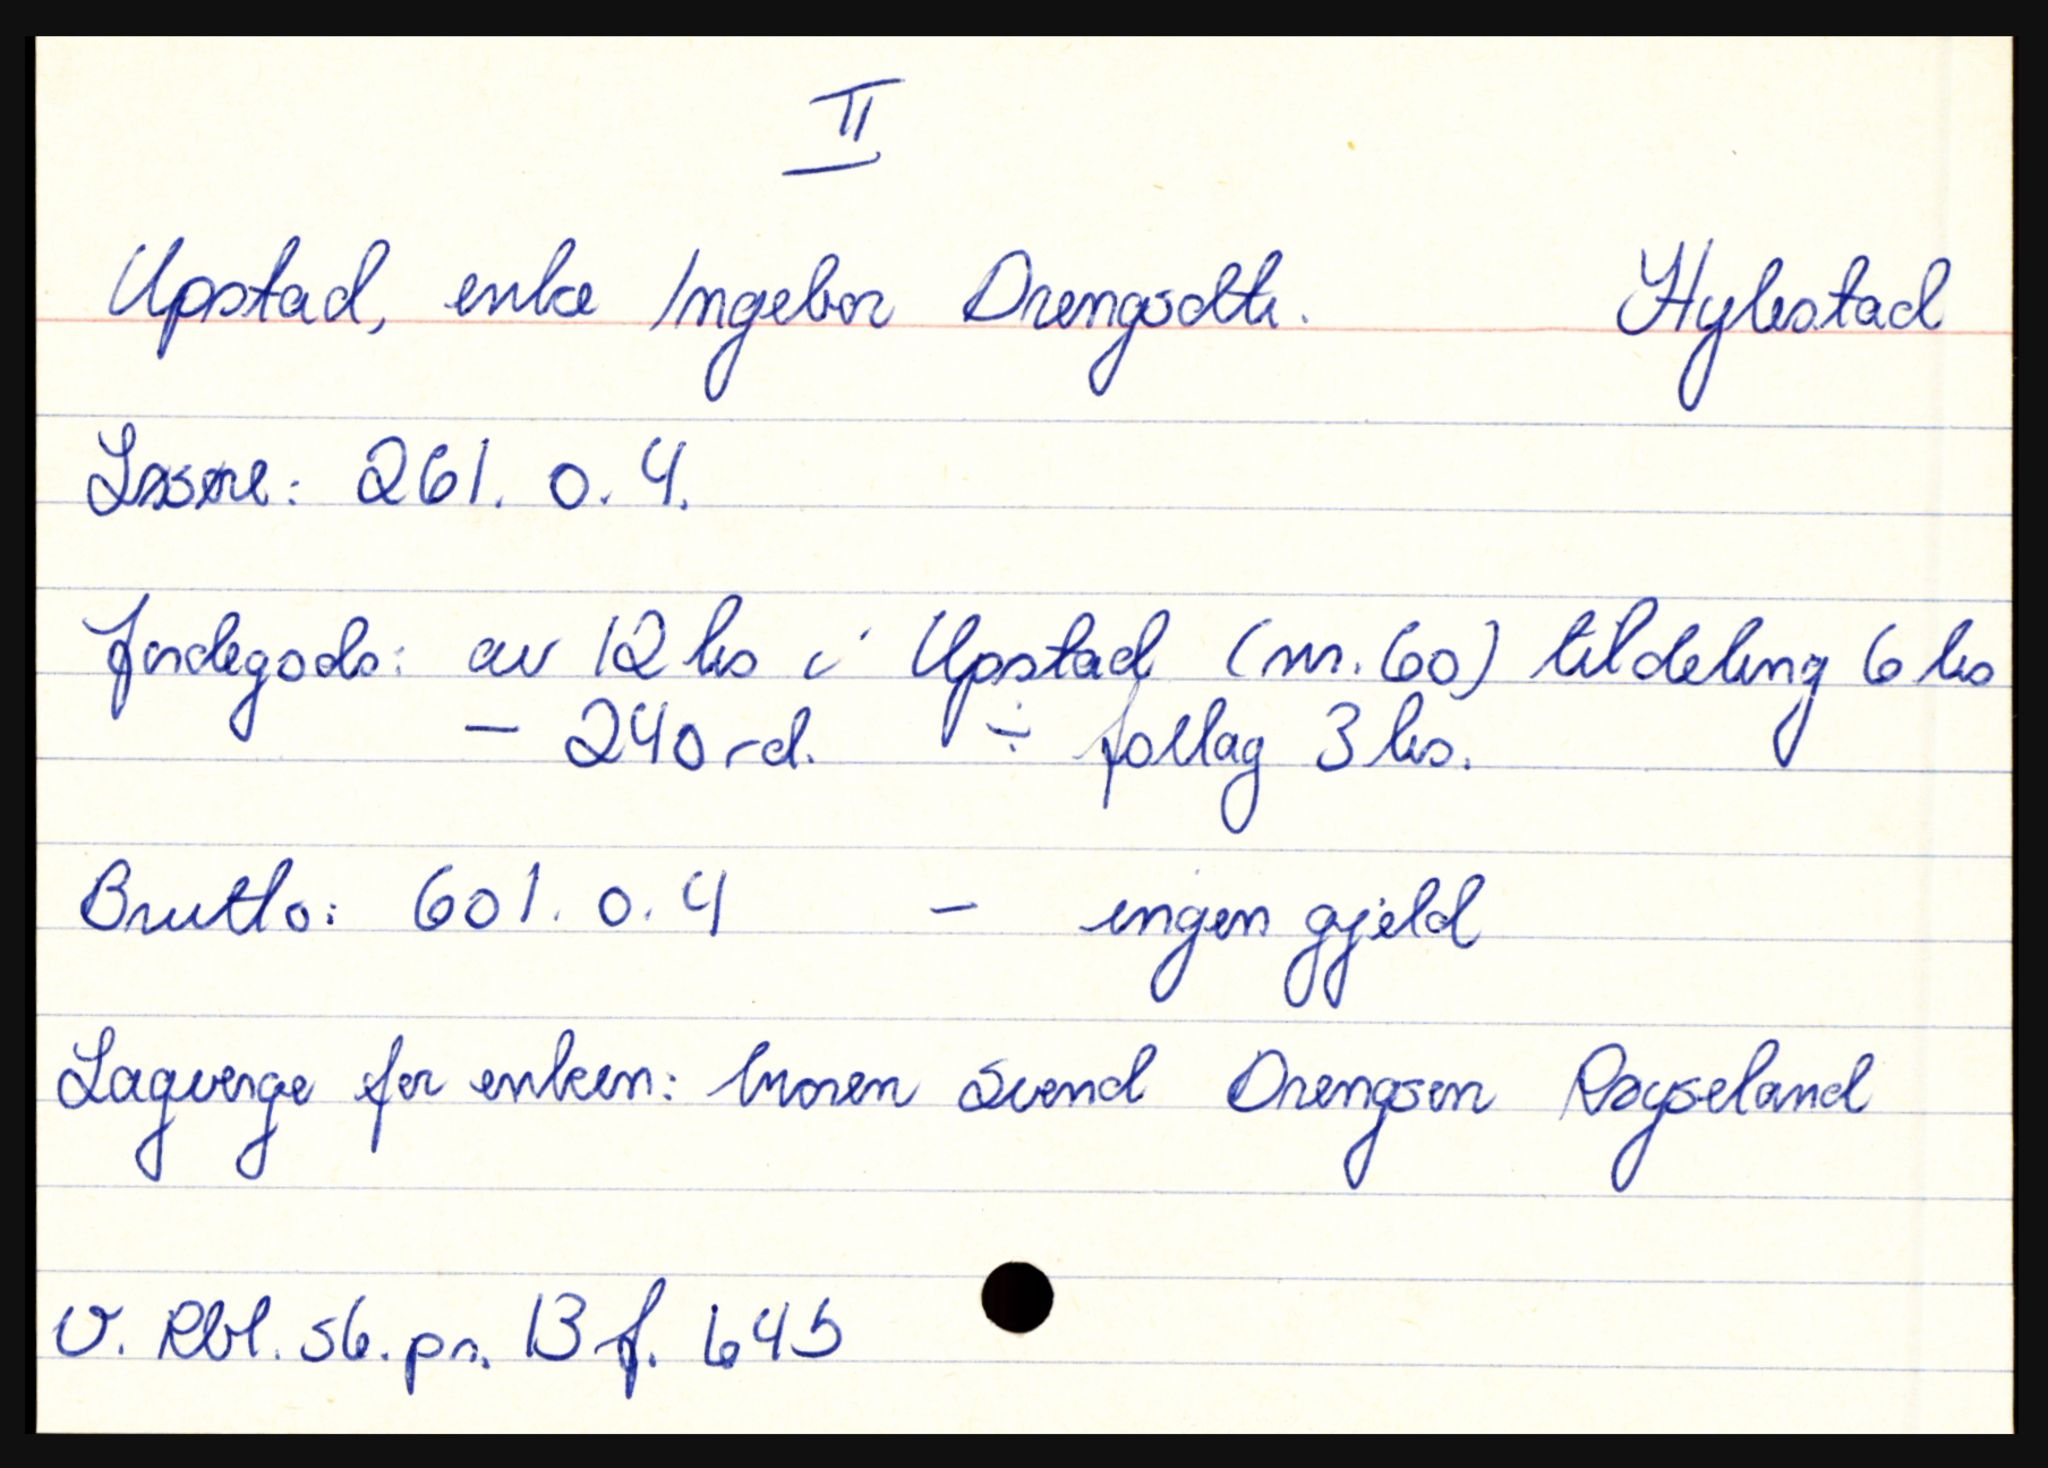 II
Upstad, enke Ingebor Drengsdtr. Hylestad
Løsøre: 261. 0. 4.
Jordegods: av 12 ks i Upstad (nr. 60) tildeling 6 ks
- 240 rd. ÷ follag 3 ks.
Brutto: 601. 0. 4 - ingen gjeld
Lagverge for enken: broren Svend Drengsen Røyseland
V. Rbl. s6. pr. 13 f. 645